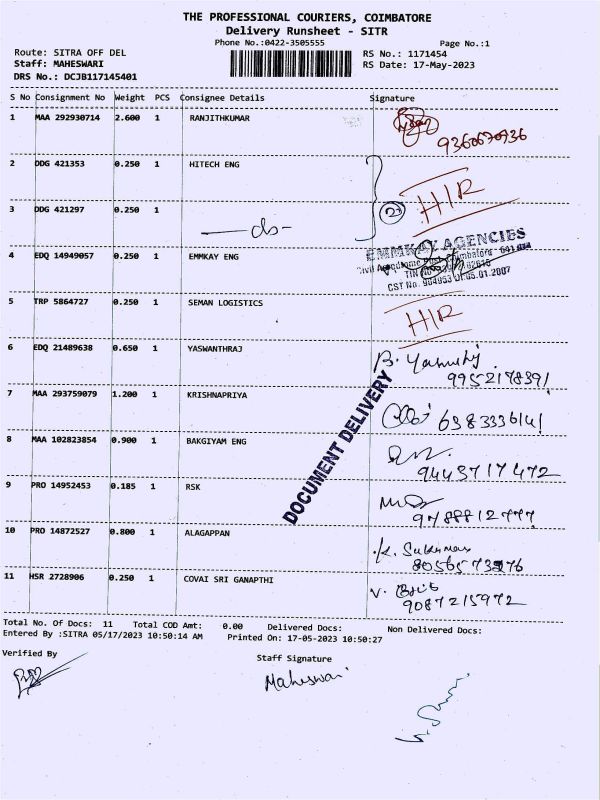 THE PROFESSIONAL COURIERS, COIMBATORE
Delivery Runsheet - SITR
Phone No.:0422-3505555 Page No.:1
Route: SITRA OFF DEL RS No.: 1171454
Staff: MAHESWARI RS Date: 17-May-2023
DRS No.: DCJB117145401
S No Consignment No Weight PCS Consignee Details Signature
1 MAA 292930714 2.600 1 RANJITHKUMAR
9360670736
2 DDG 421353 0.250 1 HITECH ENG
HIR
3 DDG 421297 0.250 1
-do-
EMMKAY AGENCIES
4 EDQ 14949057 0.250 1 EMMKAY ENG
CST No. 904963 Dt.05.01.2007
5 TRP 5864727 0.250 1 SEMAN LOGISTICS
HIR
6 EDQ 21489638 0.650 1 YASWANTHRAJ
9952178391
7 MAA 293759079 1.200 1 KRISHNAPRIYA
6383336141
DOCUMENT DELIVERY
8 MAA 102823854 0.900 1 BAKGIYAM ENG
9443717472
9 PRO 14952453 0.185 1 RSK
9788812777
10 PRO 14872527 0.800 1 ALAGAPPAN
K. Sukumar
8056573276
11 HSR 2728906 0.250 1 COVAI SRI GANAPTHI
9087215972
Total No. Of Docs: 11 Total COD Amt: 0.00 Delivered Docs: Non Delivered Docs:
Entered By :SITRA 05/17/2023 10:50:14 AM Printed On: 17-05-2023 10:50:27
Verified By Staff Signature
Maheswari